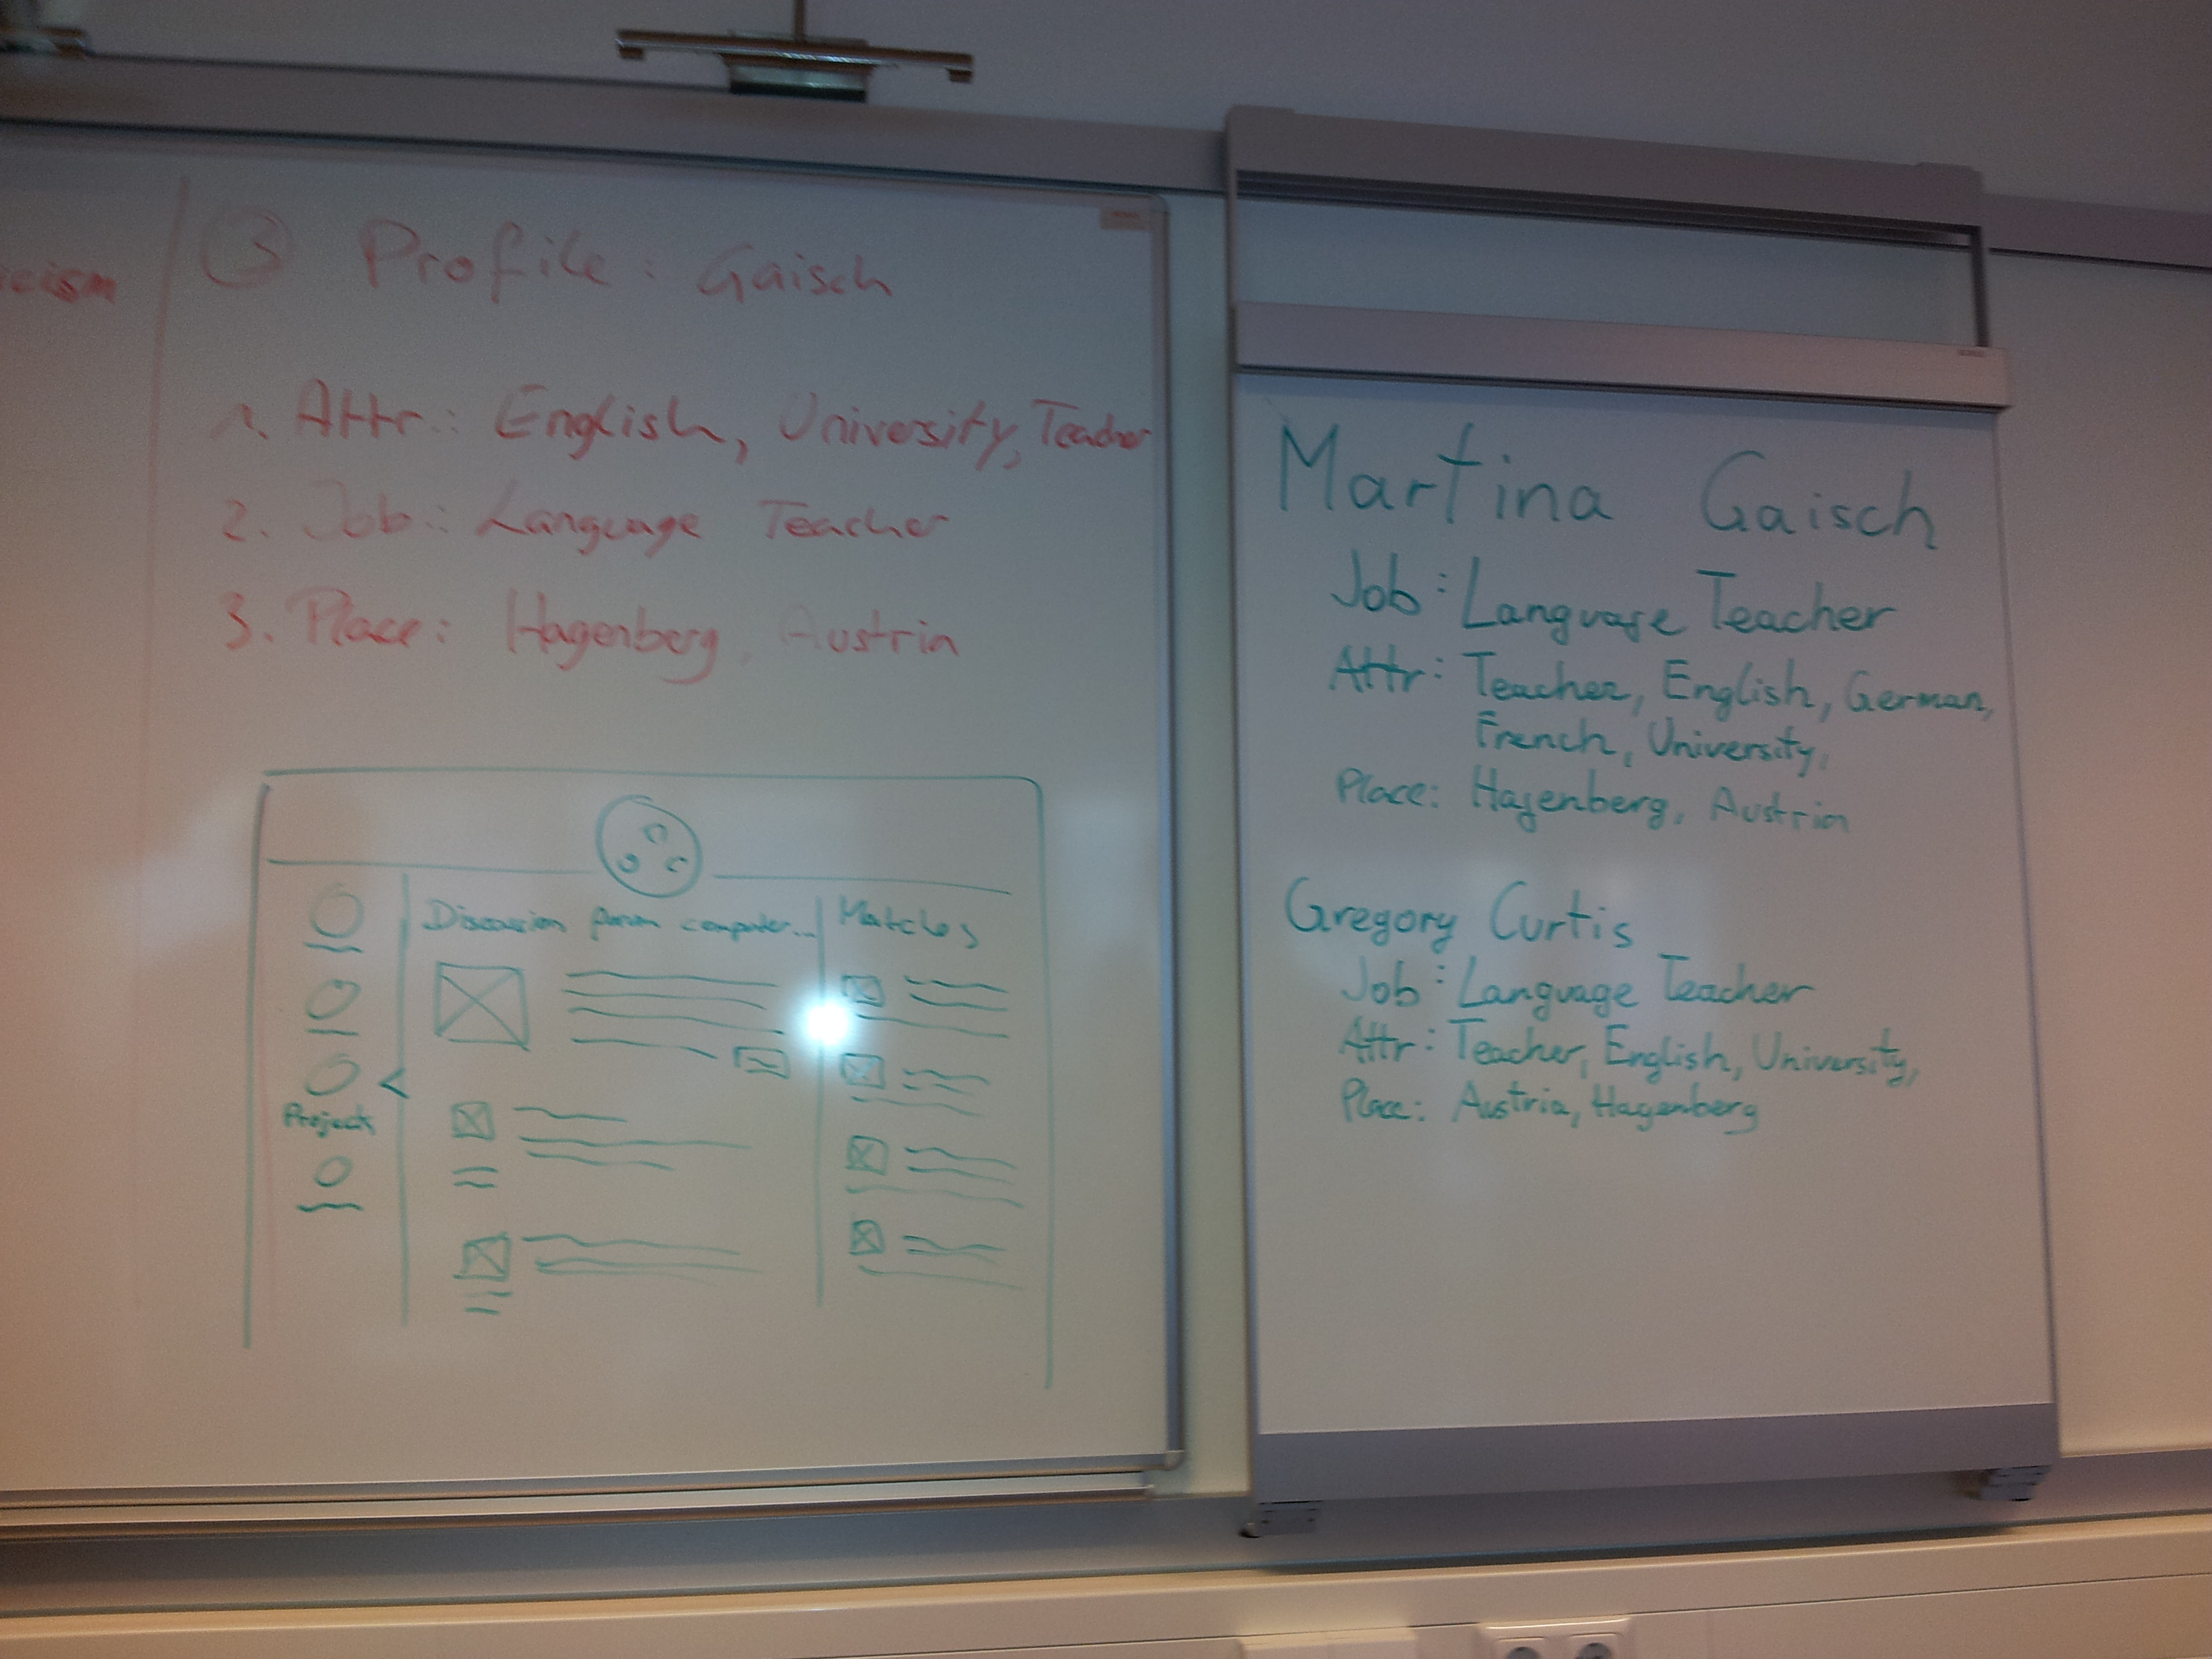 ③ Profile: Gaisch
1. Attr.: English, University, Teacher
2. Job: Language Teacher
3. Place: Hagenberg, Austria
Discussion computer...
Matches
Projects
Martina Gaisch
Job: Language Teacher
Attr: Teacher, English, German,
French, University,
Place: Hagenberg, Austria
Gregory Curtis
Job: Language Teacher
Attr: Teacher, English, University,
Place: Austria, Hagenberg